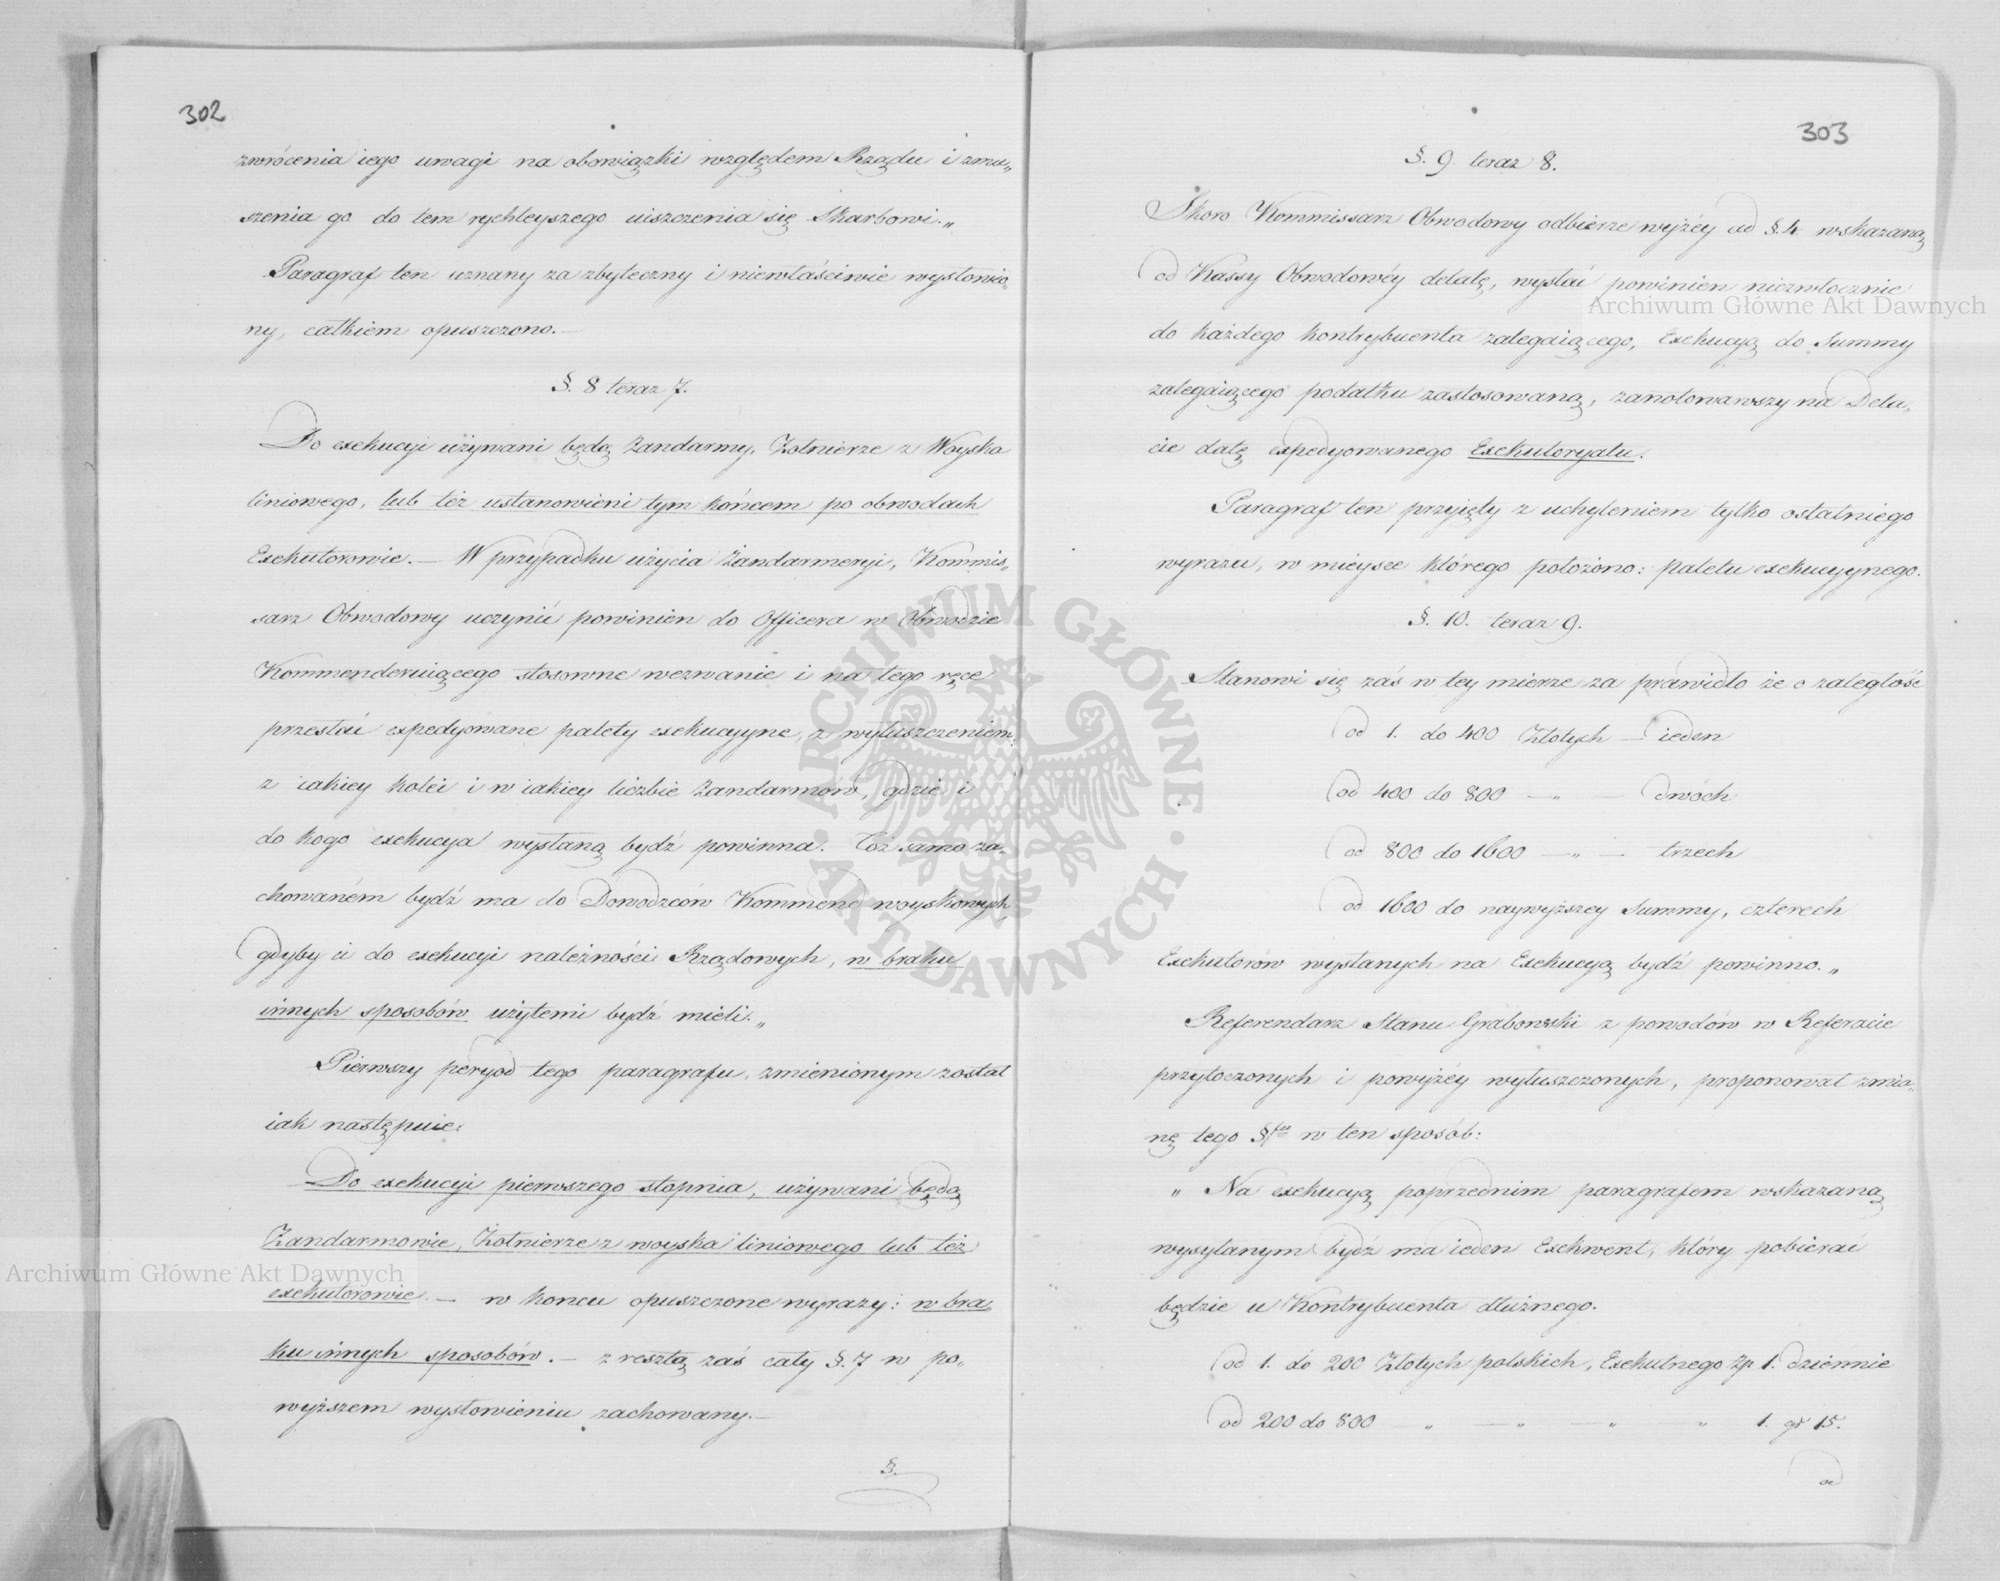 302
zwrócenia iego uwagi na obowiązki względem Rządu i zmu„
szenia go do tem rychleyszego uiszczenia się Skarbowi.„
Paragraf ten uznany za zbyteczny i niewłaściwie wysłowio„
ny, całkiem opuszczono.—
§. 8 teraz 7.
Do exekucyi używani będą Żandarmy, Żołnierze z Woyska
liniowego, lub też ustanowieni tym końcem po obwodach
Exekutorowie.— W przypadku użycia Żandarmeryi, Kommis„
sarz Obwodowy uczynić powinien do Officera w Obwodzie
Kommenderuiącego stosowne wezwanie i na tego ręce
przesłać expedyowane palety exekucyyne, z wyłuszczeniem
z iakiey kolei i w iakiey liczbie Żandarmów, gdzie i
do kogo exekucya wysłaną bydź powinna. Toż samo za„
chowaném bydź ma do Dowodzców Kommend woyskowych,
gdyby ci do exekucyi należności Rządowych, w braku
innych sposobów użytemi bydź mieli.„
Pierwszy peryod tego paragrafu, zmienionym został
iak następuie:
Do exekucyi pierwszego stopnia, używani będą
Żandarmowie, Żołnierze z woyska liniowego lub też
exekutorowie.— w końcu opuszczone wyrazy: w bra„
ku innych sposobów.— z resztą zaś cały §. 7 w po„
wyższem wysłowieniu zachowany.—
§.
303
§. 9 teraz 8.
Skoro Kommissarz Obwodowy odbierze wyżéy ad §. 4 wskazaną
od Kassy Obwodowéy delatę, wysłać powinien niezwłocznie
do każdego kontrybuenta zalegaiącego, Exekucyą do Summy
zalegaiącego podatku zastosowaną, zanotowawszy na Dela„
cie datę expedyowanego Exekutoryatu.
Paragraf ten przyięty z uchyleniem tylko ostatniego
wyrazu, w mieysce którego położono: paletu exekucyynego.
§. 10. teraz 9.
Stanowi się zaś w tey mierze za prawidło że o zaległość
od 1. do 400 Złotych — ieden
od 400 do 800 — „ dwóch
od 800 do 1600 — „ — trzech
od 1600 do naywyższey Summy, czterech
Exekutorów wysłanych na Exekucyą bydź powinno.„
Referendarz Stanu Grabowski z powodów w Referacie
przytoczonych i powyżéy wyłuszczonych, proponował zmia„
nę tego §fu w ten sposób:
„ Na exekucyą poprzednim paragrafem wskazaną
wysyłanym bydź ma ieden Exekwent, który pobierać
będzie u Kontrybuenta dłużnego.
od 1. do 200 Złotych polskich, Exekutnego Zp 1. dziennie
od 200 do 800 „ — „ — „ „ 1. gr 15.
od
Archiwum Główne Akt Dawnych
Archiwum Główne Akt Dawnych
ARCHIWUM GŁÓWNE • AKT DAWNYCH •